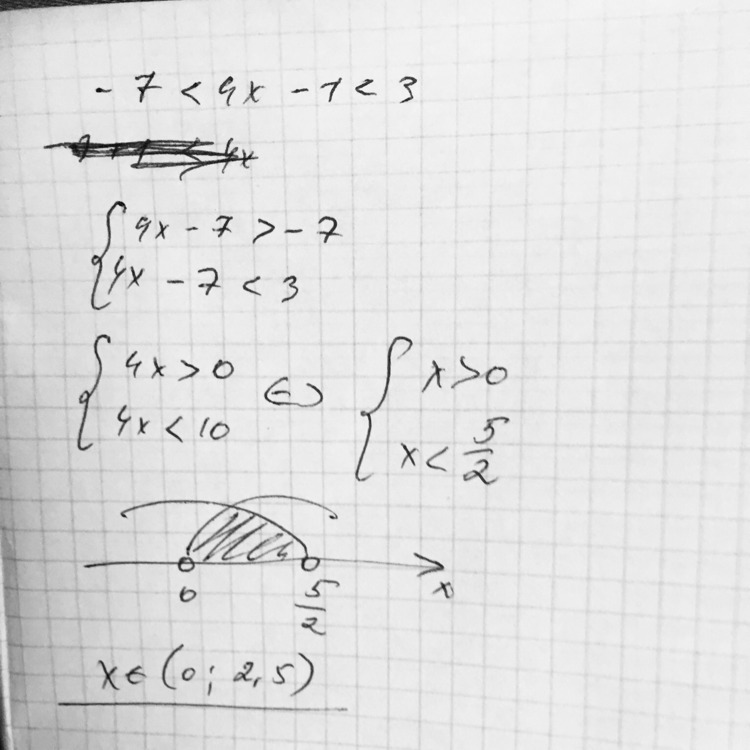 - 7 < 4x - 7 < 3
{ 4x - 7 > - 7
4x - 7 < 3
{ 4x > 0
4x < 10
⇔
{ x > 0
x < 5/2
0
5/2
x
x ∈ (0; 2,5)